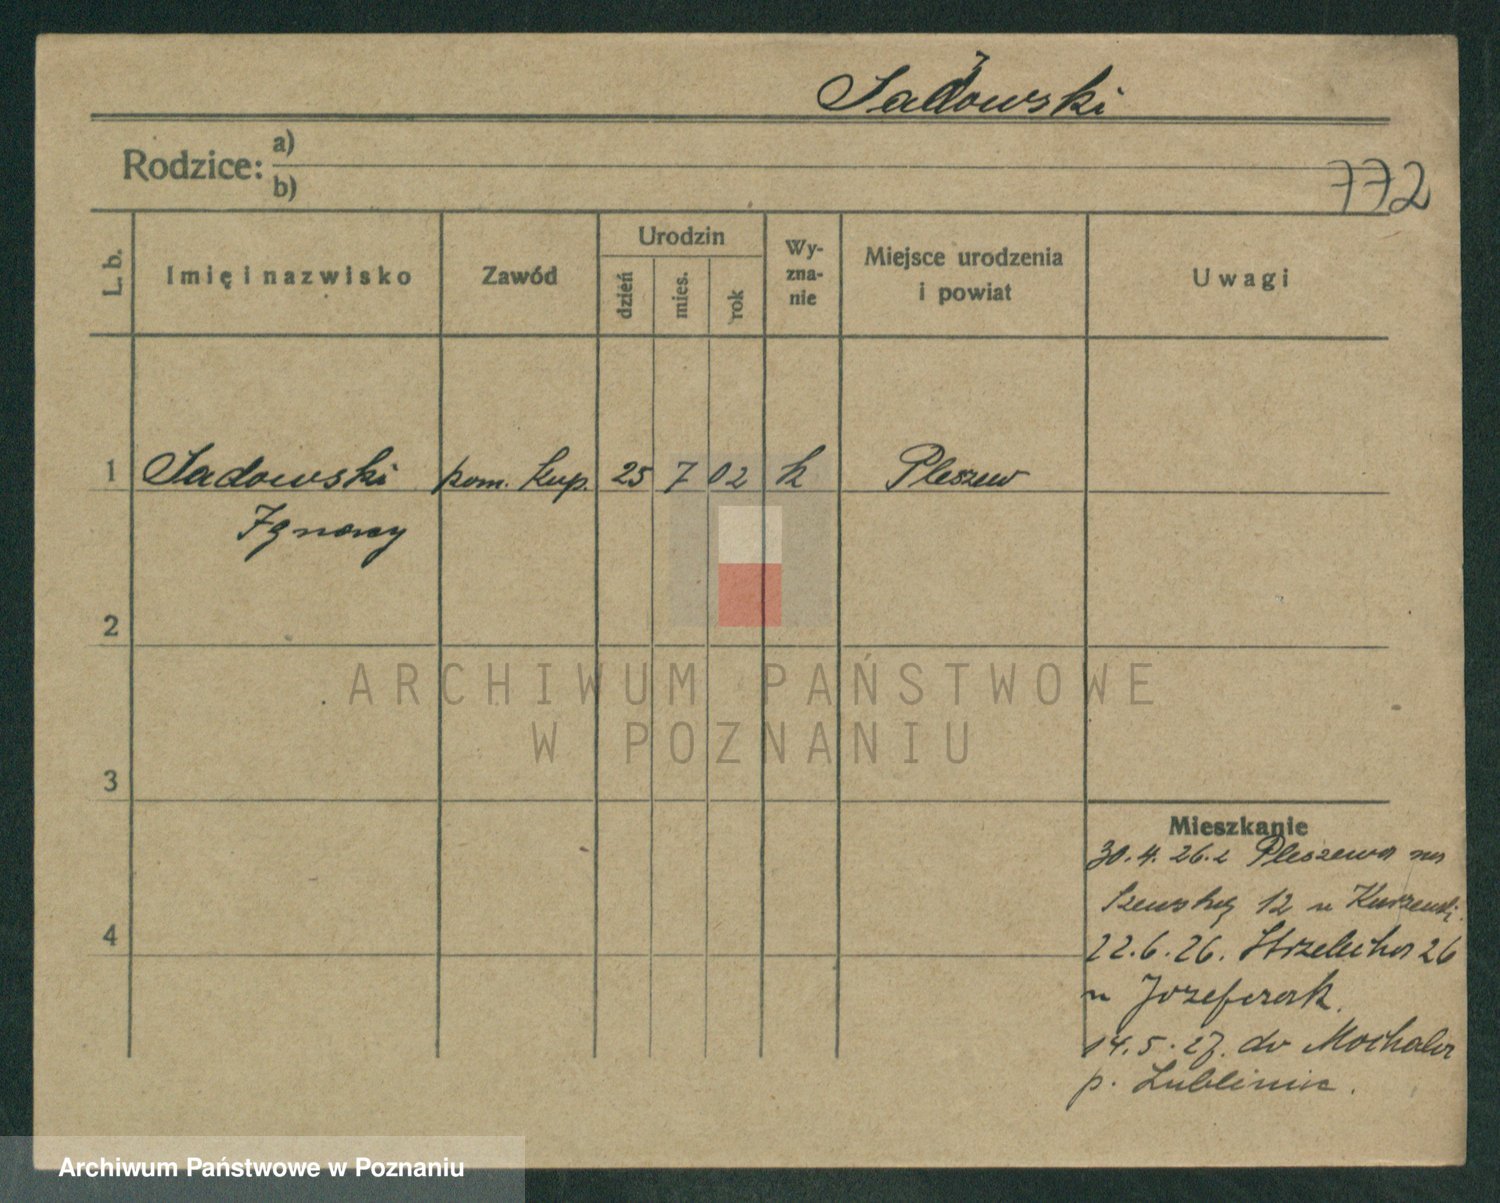 Sadowski
Rodzice: a)
b)
772
L. b.
Imię i nazwisko
Zawód
Urodzin
dzień
mies.
rok
Wy-
zna-
nie
Miejsce urodzenia
i powiat
Uwagi
1 Sadowski pom. kup. 25 7 02 k Pleszew
Ignacy
2
ARCHIWUM PAŃSTWOWE
W POZNANIU
3
Mieszkanie
30.4.26. z Pleszewa na
Szewską 12 u
4
22.6.26. Strzelecka 26
u Józefczak.
14.5.27. do
p. Lubliniec.
Archiwum Państwowe w Poznaniu